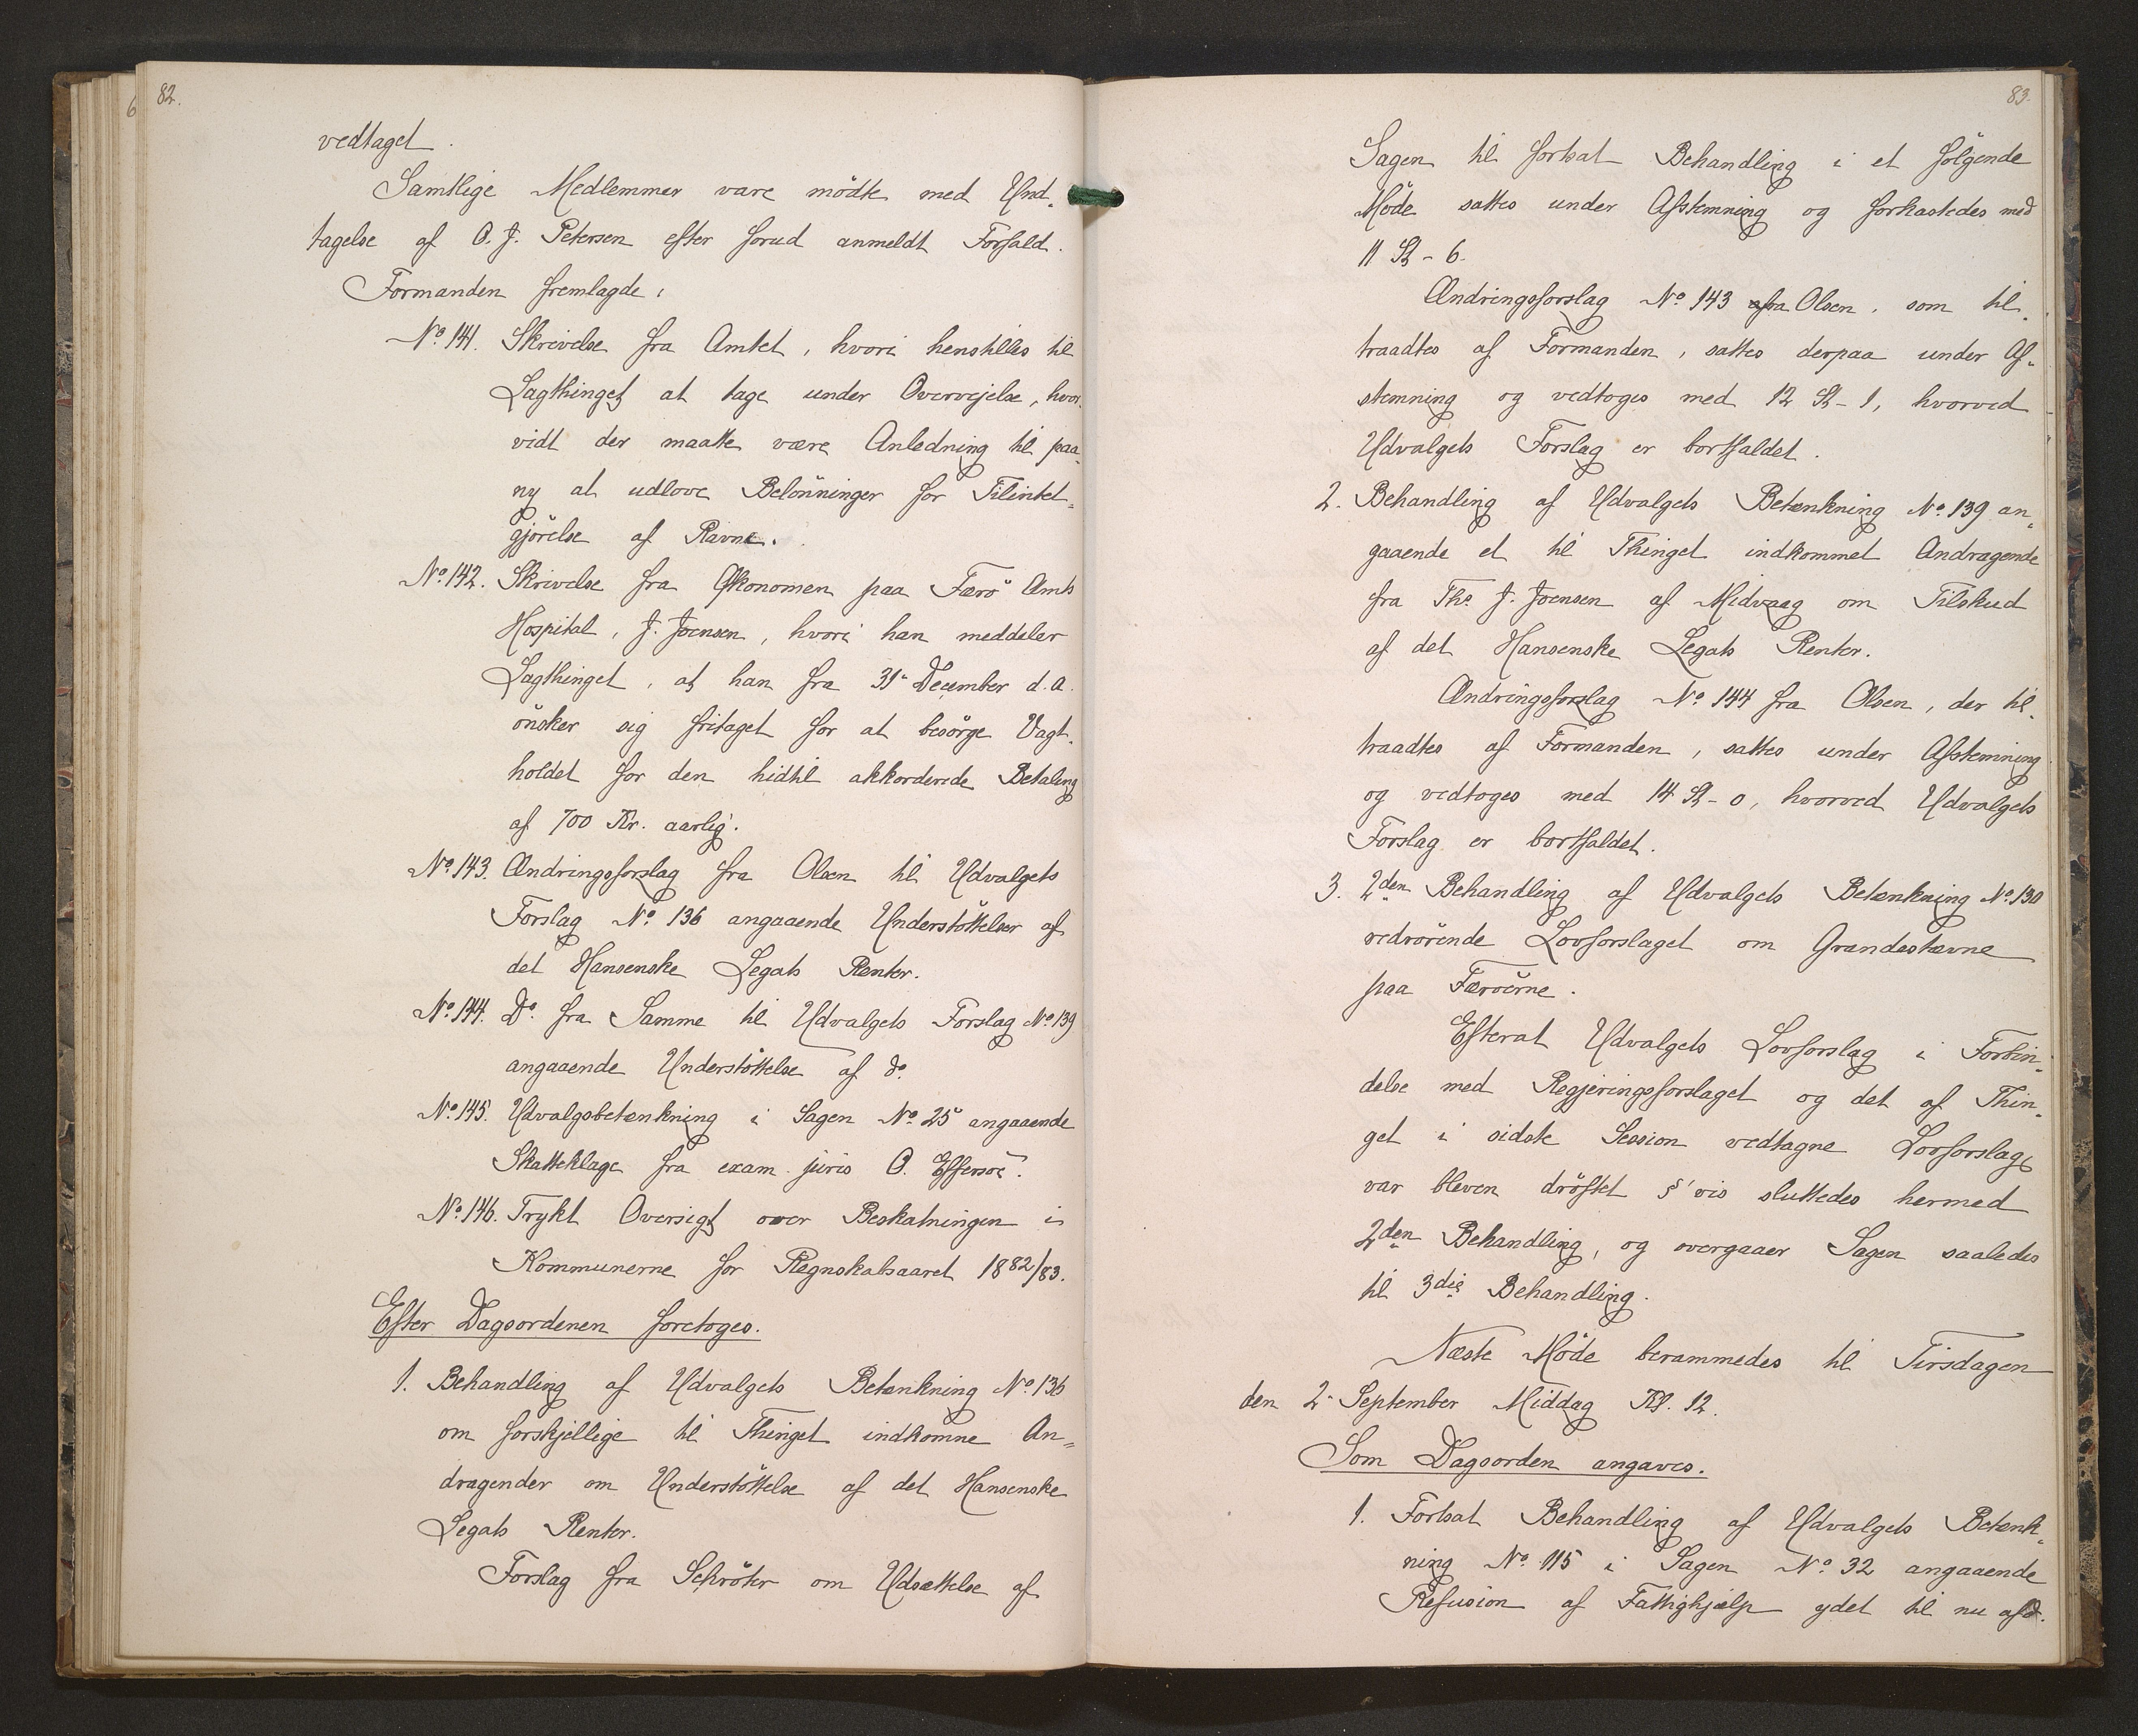 82.
vedtaget.
Samtlige Medlemmer vare mödte med Und-
tagelse af O. J. Petersen efter forud anmeldt Forfald.
Formanden fremlagde:
No. 141. Skrivelse fra Amtet, hvori henstilles til
Lagthinget at tage under Overvejelse, hvor-
vidt der maatte være Anledning til paa-
ny at udlove Belönninger for Tilintet-
gjörelse af Ravne.
No. 142. Skrivelse fra Økonomen paa Færö Amts
Hospital, J. Joensen, hvori han meddeler
Lagthinget, at han fra 31- December d. A.
önsker sig fritaget for at besörge Vagt-
holdet for den hidtil akkorderede Betaling
af 700 Kr. aarlig.
No. 143. Ændringsforslag fra Olsen til Udvalgets
Forslag No. 136 angaaende Understöttelser af
det Hansenske Legats Renter.
No. 144. Do. fra Samme til Udvalgets Forslag No. 139
angaaende Understöttelse af do.
No. 145. Udvalgsbetænkning i Sagen No. 25 angaaende
Skatteklage fra exam. juris O. Effersöe.
No. 146. Trykt Oversigt over Beskatningen i
Kommunerne for Regnskabsaaret 1882/83.
Efter Dagsordenen foretoges.
1. Behandling af Udvalgets Betænkning No. 136
om forskjellige til Thinget indkomne An-
dragender om Understöttelse af det Hansenske
Legats Renter.
Forslag fra Schröter om Udsættelse af
83.
Sagen til fortsat Behandling i et fölgende
Möde sattes under Afstemning og forkastedes med
11 St - 6.
Ændringsforslag No. 143 fra Olsen, som til-
traadtes af Formanden, sattes derpaa under Af-
stemning og vedtoges med 12 St - 1, hvorved
Udvalgets Forslag er bortfaldet.
2. Behandling af Udvalgets Betænkning No. 139 an-
gaaende et til Thinget indkommet Andragende
fra Ths. J. Joensen af Midvaag om Tilskud
af det Hansenske Legats Renter.
Ændringsforslag No. 144 fra Olsen, der til-
traadtes af Formanden, sattes under Afstemning
og vedtoges med 14 St - 0, hvorved Udvalgets
Forslag er bortfaldet.
3. 2den Behandling af Udvalgets Betænkning No. 130
vedrörende Lovforslaget om Grandestævne
paa Færöerne.
Efterat Udvalgets Lovforslag i Forbin-
delse med Regjeringsforslaget og det af Thin-
get i sidste Session vedtagne Lovforslag
var bleven dröftet §'vis sluttedes hermed
2den Behandling, og overgaaer Sagen saaledes
til 3die Behandling.
Næste Möde berammedes til Tirsdagen
den 2- September Middag Kl. 12.
Som Dagsorden angaves.
1. Fortsat Behandling af Udvalgets Betænk-
ning No. 115 i Sagen No. 32 angaaende
Refusion af Fattighjælp ydet til nu afd.